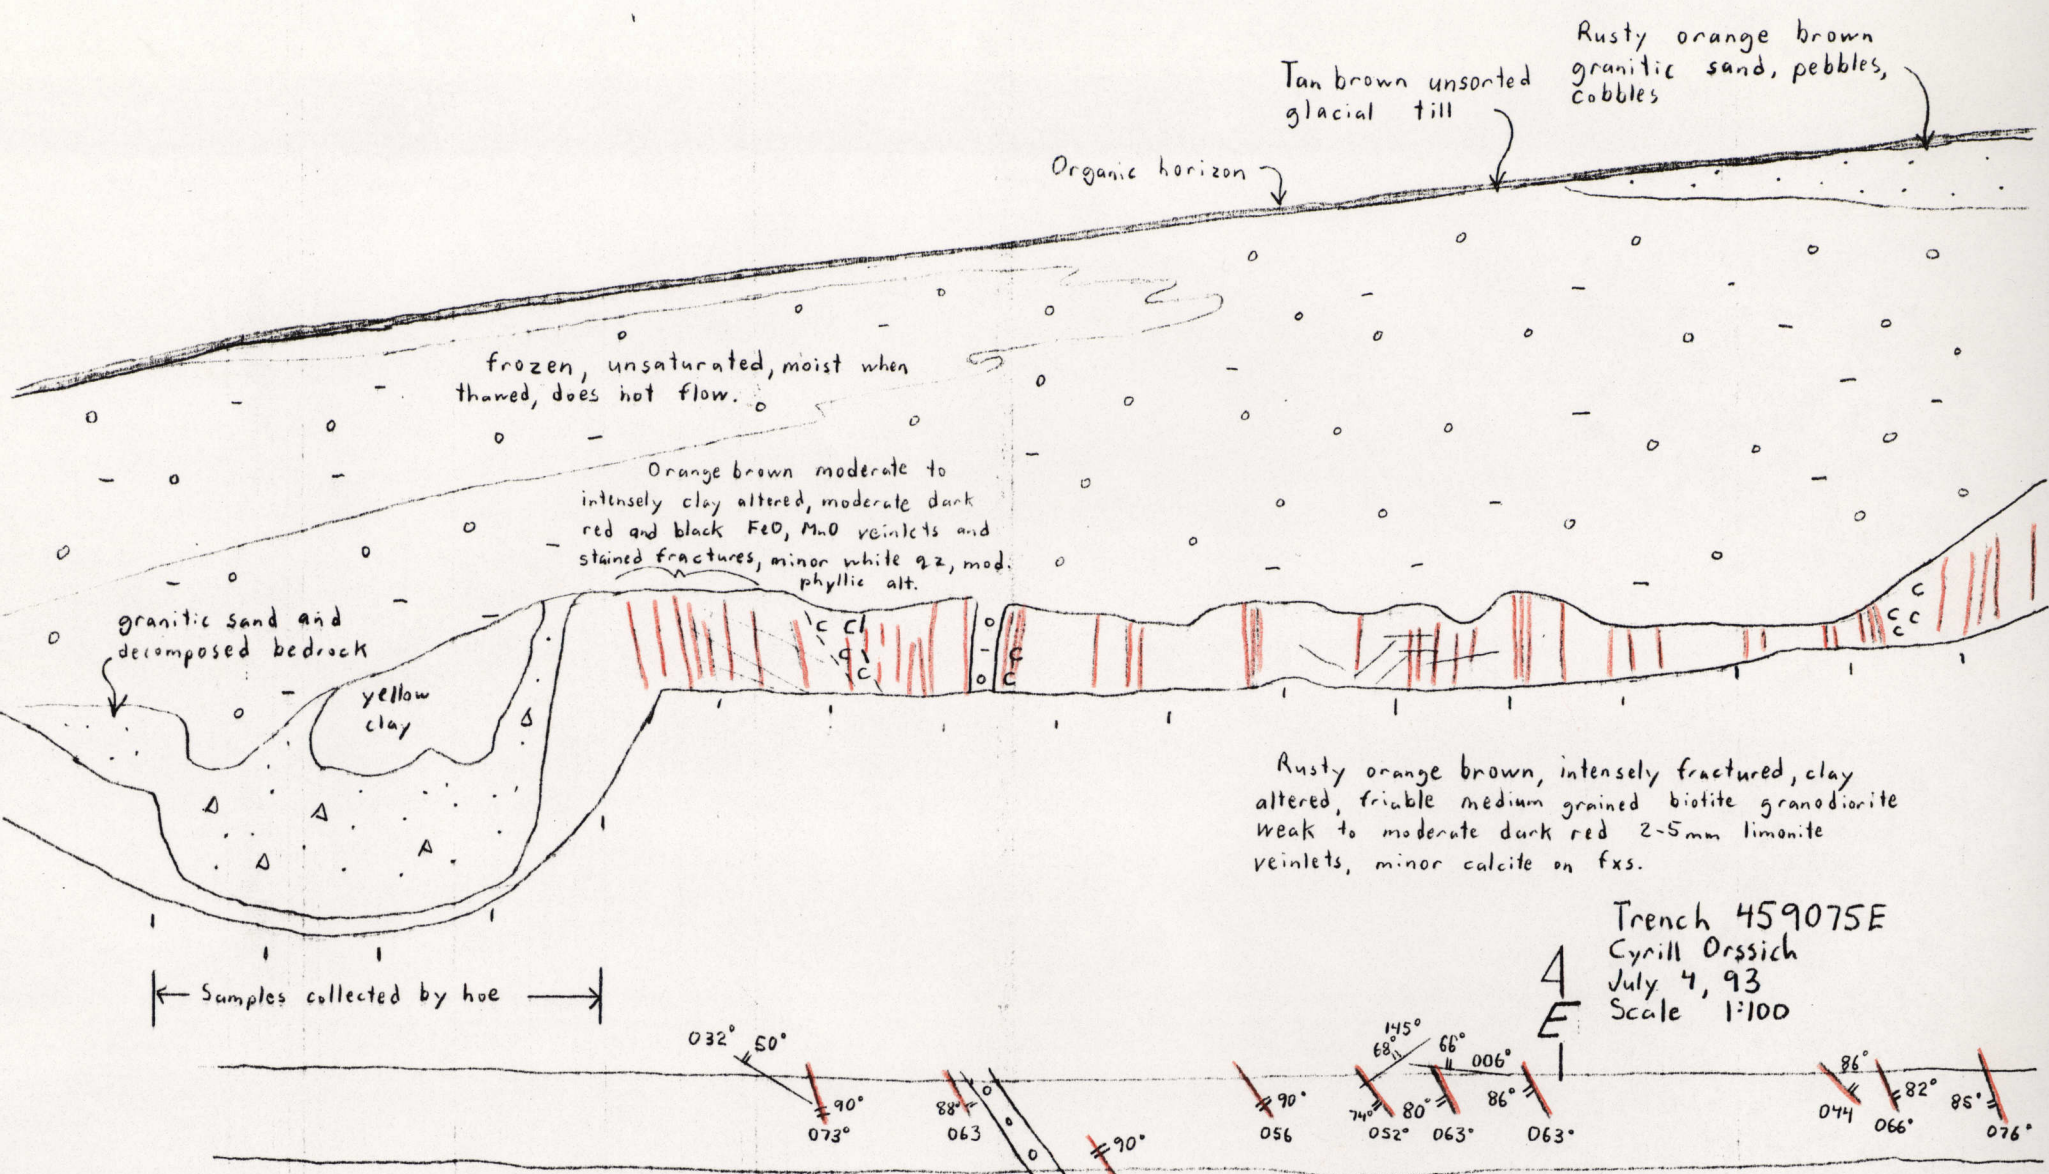 Rusty orange brown
granitic sand, pebbles,
cobbles
Tan brown unsorted
glacial till
Organic horizon
frozen, unsaturated, moist when
thawed, does not flow.
Orange brown moderate to
intensely clay altered, moderate dark
red and black FeO, MnO veinlets and
stained fractures, minor white qz, mod.
phyllic alt.
granitic sand and
decomposed bedrock
yellow
clay
C C
C
C
C
C
C
C C
C
Rusty orange brown, intensely fractured, clay
altered, friable medium grained biotite granodiorite
weak to moderate dark red 2-5mm limonite
veinlets, minor calcite on fxs.
Trench 459075E
Cyrill Orssich
July 4, 93
Scale 1:100
E
Samples collected by hoe
032° 50°
90°
073°
88°
063
90°
90°
056
145°
68°
74°
052°
66°
006°
80°
063°
86°
063°
86°
044
82°
066°
85°
076°